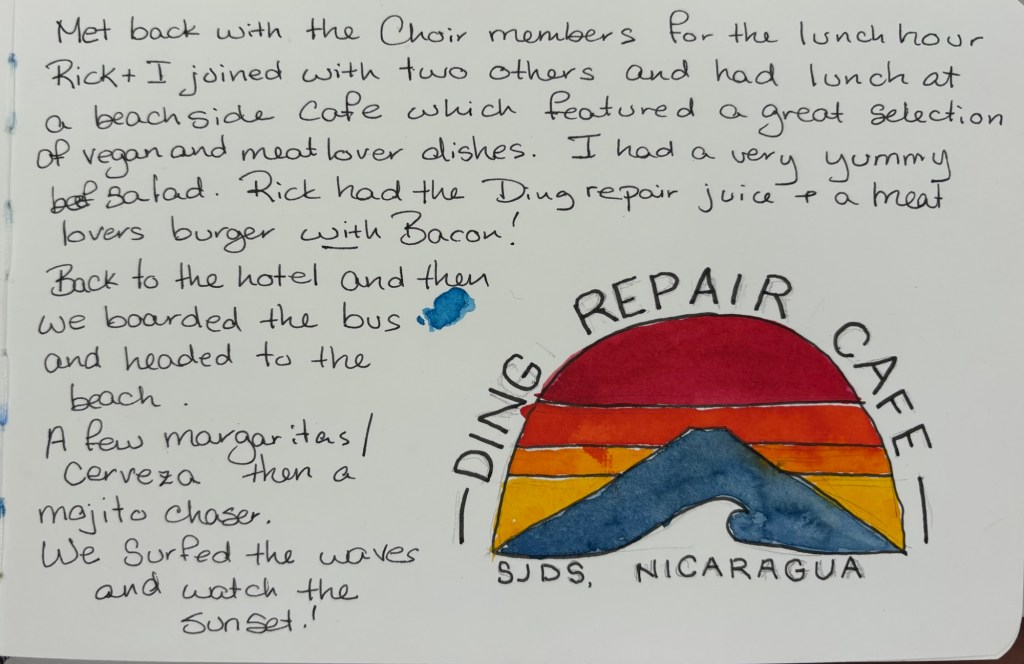 Met back with the Choir members for the lunch hour
Rick + I joined with two others and had lunch at
a beachside Cafe which featured a great selection
of vegan and meat lover dishes. I had a very yummy
salad. Rick had the Ding repair juice + a meat
lovers burger with Bacon!
Back to the hotel and then
we boarded the bus
and headed to the
beach.
A few margaritas/
Cerveza then a
mojito chaser.
We Surfed the waves
and watch the
sunset.!
DING REPAIR CAFE
SJDS, NICARAGUA